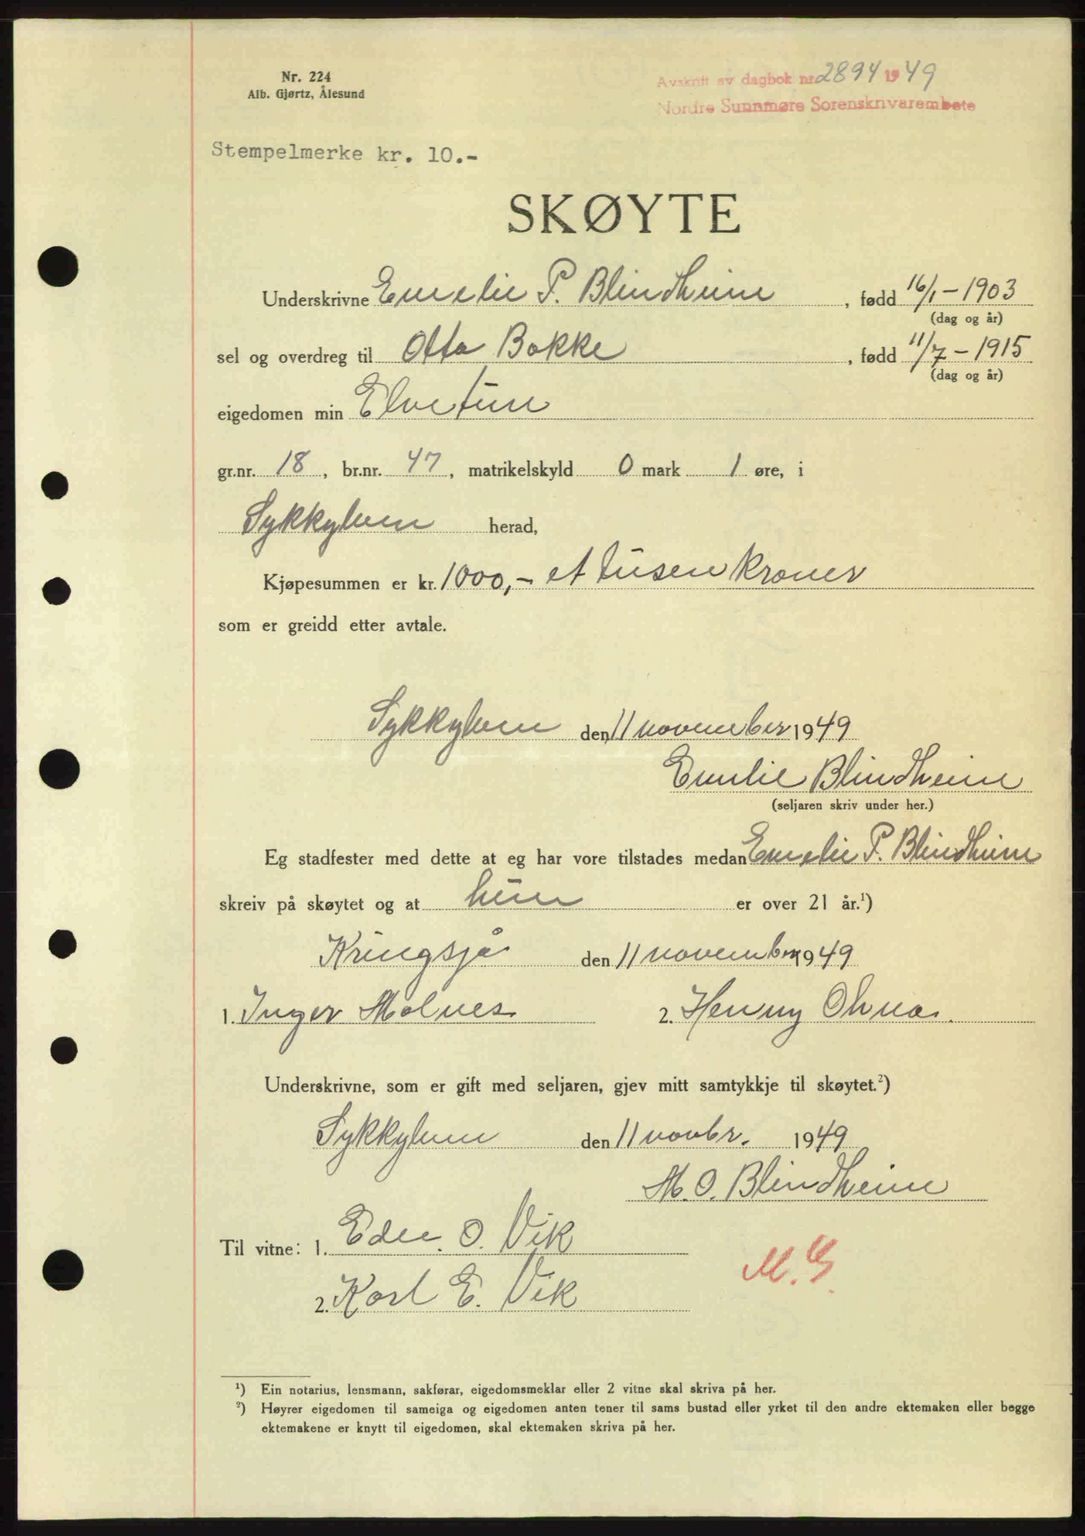 Nr. 224
Alb. Gjørtz, Ålesund
Avskrift av dagbok nr. 2894 1949
Nordre Sunnmøre Sorenskrivarembete
Stempelmerke kr. 10.-
SKØYTE
Underskrivne Emelie P. Blindheim, fødd 16/1-1903
(dag og år)
sel og overdreg til Otto Bakke, fødd 11/7-1915
(dag og år)
eigedomen min Elvetun
gr.nr. 18, br.nr. 47, matrikelskyld 0 mark 1 øre, i
Sykkylven herad,
Kjøpesummen er kr. 1000,- et tusen kroner
som er greidd etter avtale.
Sykkylven den 11 november 1949
Emelie Blindheim
(seljaren skriv under her.)
Eg stadfester med dette at eg har vore tilstades medan Emelie P. Blindheim
skreiv på skøytet og at hun er over 21 år.¹)
Kringsjå den 11 november 1949
1. Inger Molnes 2. Henny
Underskrivne, som er gift med seljaren, gjev mitt samtykkje til skøytet.²)
Sykkylven den 11 novbr. 1949
M. O. Blindheim
Til vitne: 1. O. Vik
2. Karl E. Vik
M. G
¹) Ein notarius, lensmann, sakførar, eigedomsmeklar eller 2 vitne skal skriva på her.
²) Høyrer eigedomen til sameiga og eigedomen anten tener til sams bustad eller yrket til den andre ektemaken eller begge
ektemakene er knytt til eigedomen, skal ektemaken skriva på her.